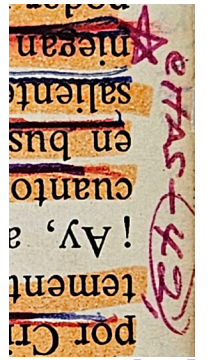 por Cri
tement
¡ Ay, a
cuanto
en bus
salient
niegan